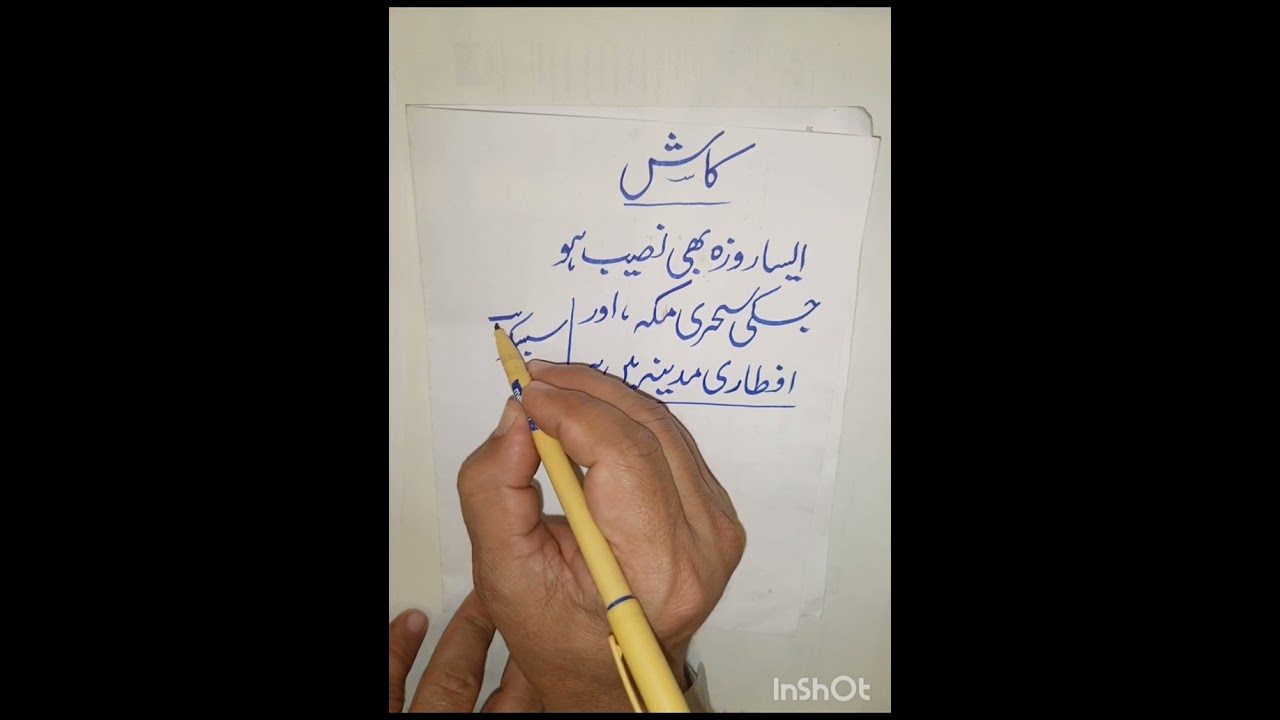 کاش
ایسا روزہ بھی نصیب ہو
جسکی سحری مکہ، اور
افطاری مدینہ میں
InShOt